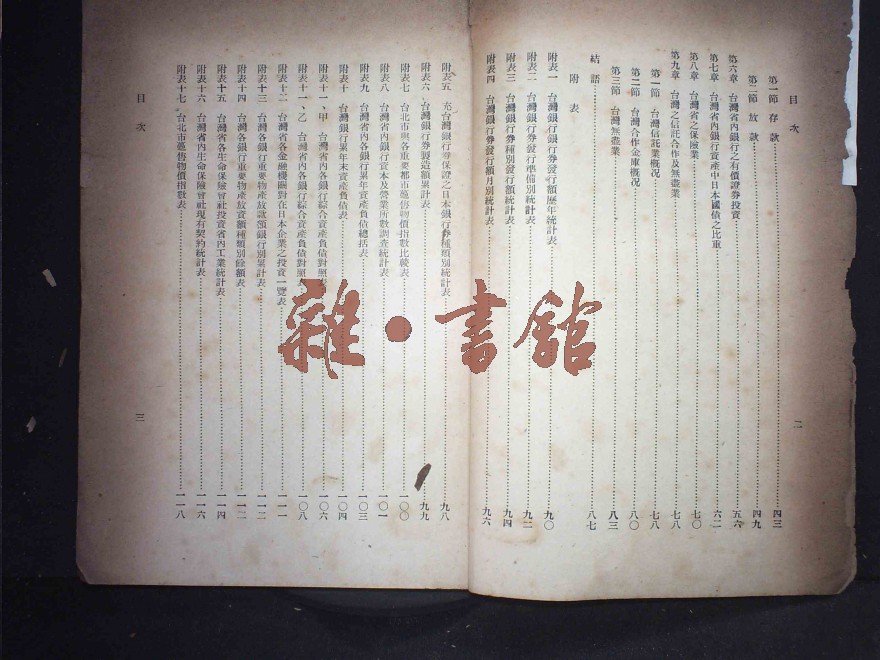 目次
第一節 存款 四三
第二節 放款 四九
第六章 台灣省內銀行之有價證券投資 五六
第七章 台灣省內銀行資產中日本國債之比重 六二
第八章 台灣省之保險業 七〇
第九章 台灣之信託合作及無盡業 七八
第一節 台灣信託業概況 七八
第二節 台灣合作金庫概況 八〇
第三節 台灣無盡業 八三
結語 八七
附表
附表一 台灣銀行券發行額歷年統計表 九〇
附表二 台灣銀行券發行準備別統計表 九二
附表三 台灣銀行券種別發行額統計表 九四
附表四 台灣銀行券發行額月別統計表 九六
二
附表五 充台灣銀行券保證之日本銀行券種類別統計表 九八
附表六 台灣銀行券製造額累計表 九九
附表七 台北市與各重要都市躉售物價指數比較表 一〇〇
附表八 台灣省內銀行資本及營業所數調查統計表 一〇一
附表九 台灣省內各銀行累年資產負債總括表 一〇三
附表十 台灣銀行累年末資產負債表 一〇四
附表十一、甲 台灣省內各銀行綜合資產負債對照表 一〇六
附表十一、乙 台灣省內各銀行綜合資產負債對照表 一〇八
附表十二 台灣省各金融機關對在日本企業之投資一覽表 一一一
附表十三 台灣各銀行重要物產放款額銀行別累計表 一一二
附表十四 台灣各銀行重要物產放資額種類別餘額表 一一二
附表十五 台灣省各生命保險會社投資省內工業統計表 一一四
附表十六 台灣省內生命保險會社現有契約統計表 一一六
附表十七 台北市躉售物價指數表 一一八
目次
三
雜•書館